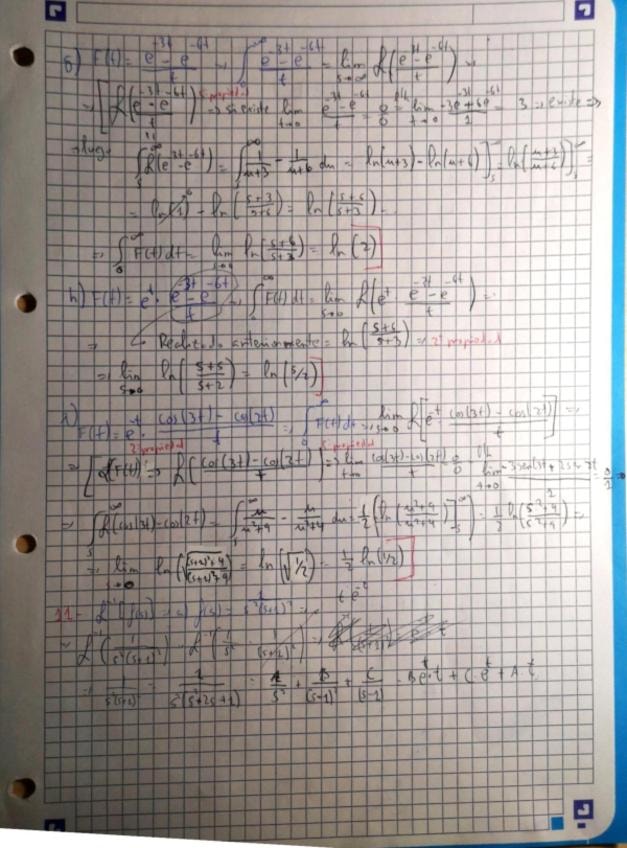 6) F(t) = (e^-3t - e^-6t)/t → ∫₀^∞ (e^-3t - e^-6t)/t = lim s→∞ ℒ((e^-3t - e^-6t)/t) →
→ [ℒ((e^-3t - e^-6t)/t) 5ª propiedad → si existe lim t→0 (e^-3t - e^-6t)/t = 0/0 = lim t→0 (-3e + 6e^-6t)/1 = 3 → existe ⇒
→ luego ∫s^∞ ℒ(e^-3t - e^-6t) = ∫s^∞ 1/(u+3) - 1/(u+6) du = ln(u+3) - ln(u+6)]s^∞ = ln((u+3)/(u+6))]s^∞ =
= ln(1) - ln((s+3)/(s+6)) = ln((s+6)/(s+3))
⇒ ∫₀^∞ F(t) dt = lim s→0 ln((s+6)/(s+3)) = ln(2)]
h) F(t) = e^t · (e^-3t - e^-6t)/t → ∫₀^∞ F(t) dt = lim s→0 ℒ(e^t · (e^-3t - e^-6t)/t) =
⇒ Realizado anteriormente = ln((s+6)/(s+3)) ⇒ 2ª propiedad
⇒ lim s→0 ln((s+5)/(s+2)) = ln(5/2)]
F(t) = e^-t · (cos(3t) - cos(2t))/t → ∫₀^∞ F(t) dt → lim s→0 ℒ[e^-t · (cos(3t) - cos(2t))/t] ⇒
2ª propiedad 5ª propiedad
⇒ [ℒ(F(t)) ⇒ ℒ[(cos(3t) - cos(2t))/t] ⇒ lim t→0 (cos(3t) - cos(2t))/t = 0/0 = lim t→0 (-3 sen 3t + 2 sen 2t)/1
⇒ ∫s^∞ ℒ(cos(3t) - cos(2t)) = ∫s^∞ u/(u²+9) - u/(u²+4) du = 1/2 [ln((u²+9)/(u²+4))]s^∞ = 1/2 ln((s²+4)/(s²+9)) ⇒
⇒ lim s→0 ln(√
= ln(√1/2) = 1/2 ln(1/2)]
11- ℒ^-1(f(s)) ⇒ f(s) = 1/(s²(s+1)²)
t e^-t
ℒ^-1(1/(s²(s+1)²)) = ℒ^-1(1/s² · 1/(s+1)²)
⇒ 1/(s²(s+1)²) = 1/(s²(s²+2s+1)) = A/s² + B/(s-1)² + C/(s-1) = Be^t·t + C·e^t + A·t